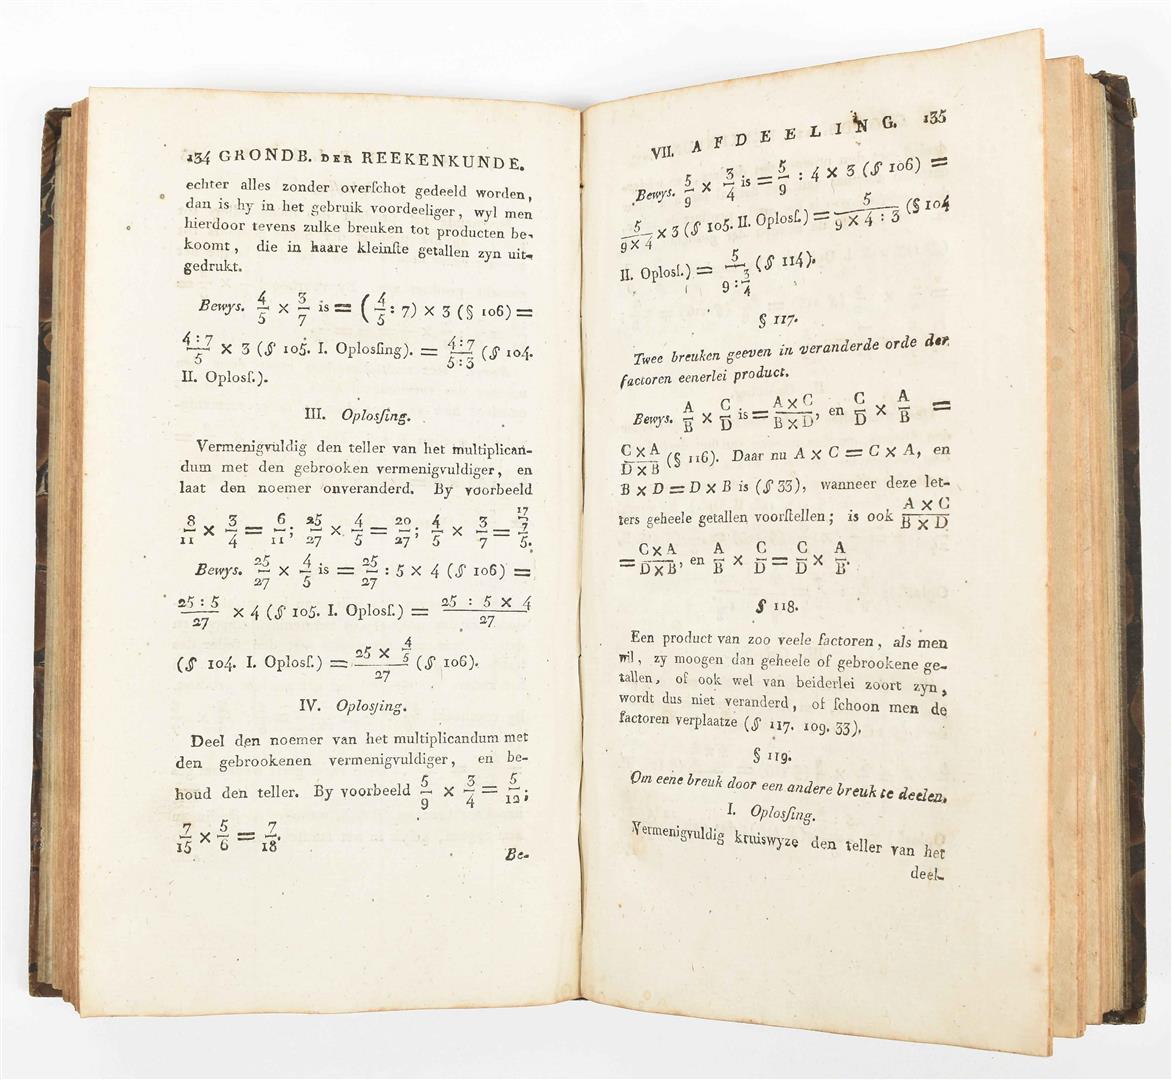 134 GRONDB. DER REEKENKUNDE.
echter alles zonder overſchot gedeeld worden,
dan is hy in het gebruik voordeeliger, wyl men
hierdoor tevens zulke breuken tot producten be-
koomt, die in haare kleinſte getallen zyn uit-
gedrukt.
Bewys. 4/5 × 3/7 is = (4/5 : 7) × 3 (§ 106) =
4:7/5 × 3 (§ 105. I. Oplosſing). = 4:7/5:3 (§ 104.
II. Oplosſ.).
III. Oplosſing.
Vermenigvuldig den teller van het multiplican-
dum met den gebrooken vermenigvuldiger, en
laat den noemer onveranderd. By voorbeeld
8/11 × 3/4 = 6/11; 25/27 × 4/5 = 20/27; 4/5 × 3/7 = 17/7/5.
Bewys. 25/27 × 4/5 is = 25/27 : 5 × 4 (§ 106) =
25:5/27 × 4 (§ 105. I. Oplosſ.) = 25 : 5 × 4/27
(§ 104. I. Oplosſ.) = 25 × 4/5/27 (§ 106).
IV. Oplosſing.
Deel den noemer van het multiplicandum met
den gebrookenen vermenigvuldiger, en be-
houd den teller. By voorbeeld 5/9 × 3/4 = 5/12;
7/15 × 5/6 = 7/18.
Be-
VII. AFDEELING. 135
Bewys. 5/9 × 3/4 is = 5/9 : 4 × 3 (§ 106) =
5/9×4 × 3 (§ 105. II. Oplosſ.) = 5/9 × 4 : 3 (§ 104
II. Oplosſ.) = 5/9:3/4 (§ 114).
§ 117.
Twee breuken geeven in veranderde orde der
factoren eenerlei product.
Bewys. A/B × C/D is = A×C/B×D, en C/D × A/B =
C×A/D×B (§ 116). Daar nu A × C = C × A, en
B × D = D × B is (§ 33), wanneer deze let-
ters geheele getallen voorſtellen; is ook A × C/B × D
= C×A/D×B, en A/B × C/D = C/D × A/B.
§ 118.
Een product van zoo veele factoren, als men
wil, zy moogen dan geheele of gebrookene ge-
tallen, of ook wel van beiderlei zoort zyn,
wordt dus niet veranderd, of ſchoon men de
factoren verplaatze (§ 117. 109. 33).
§ 119.
Om eene breuk door een andere breuk te deelen.
I. Oplosſing.
Vermenigvuldig kruiswyze den teller van het
deel-